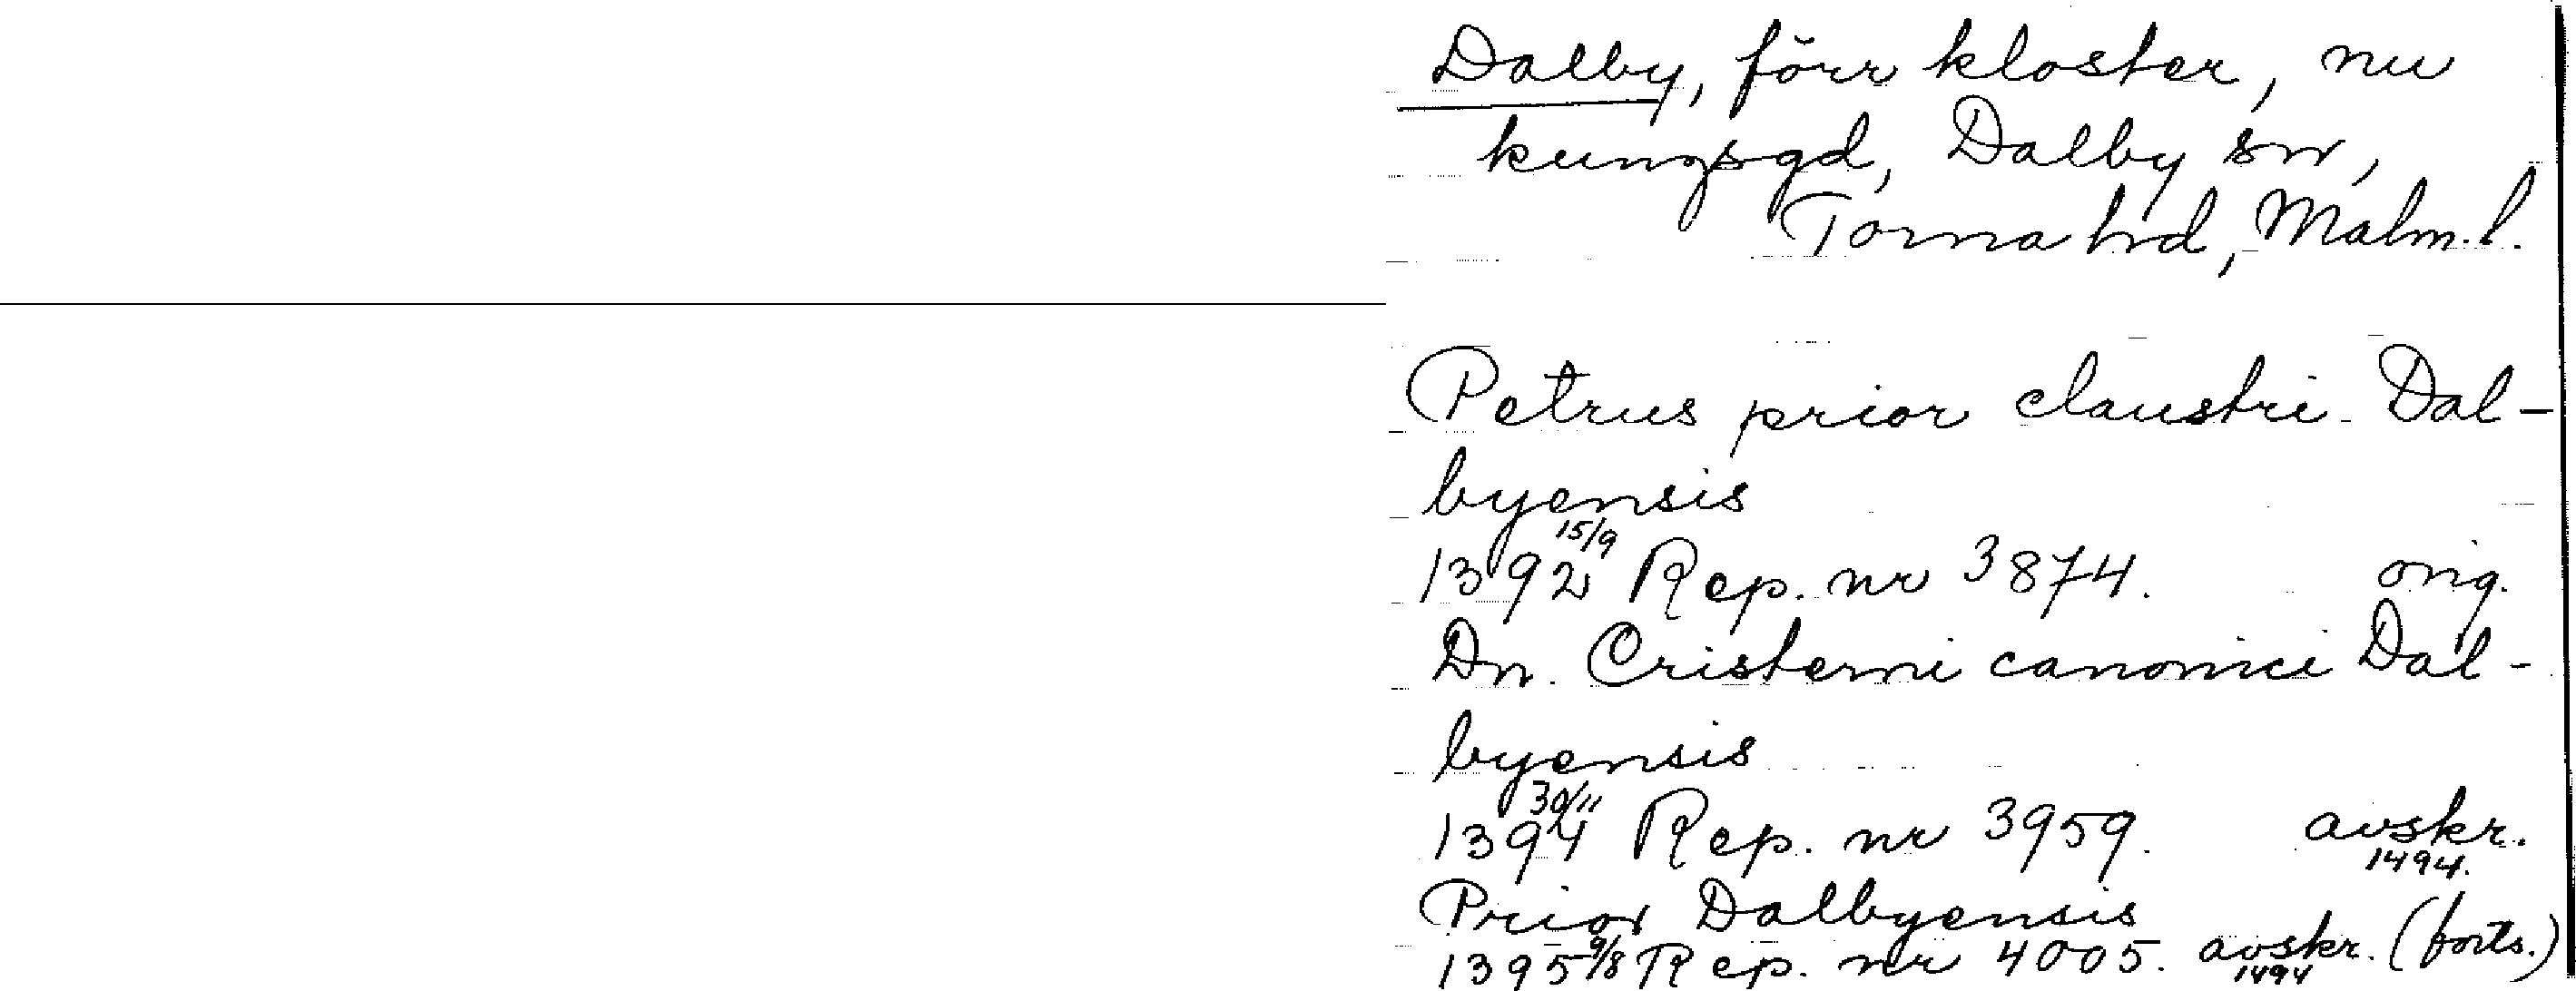 Dalby, förr kloster, nu
kungsgd, Dalby sn,
Torna hd, Malm. l.
Petrus prior claustri Dal-
byensis
1392 15/9 Rep. nr 3874. orig.
Dn. Cristerni canonici Dal-
byensis
1394 30/11 Rep. nr 3959. avskr. 1494.
Prior Dalbyensis
1395 9/8 Rep. nr 4005. avskr. 1494 (forts.)